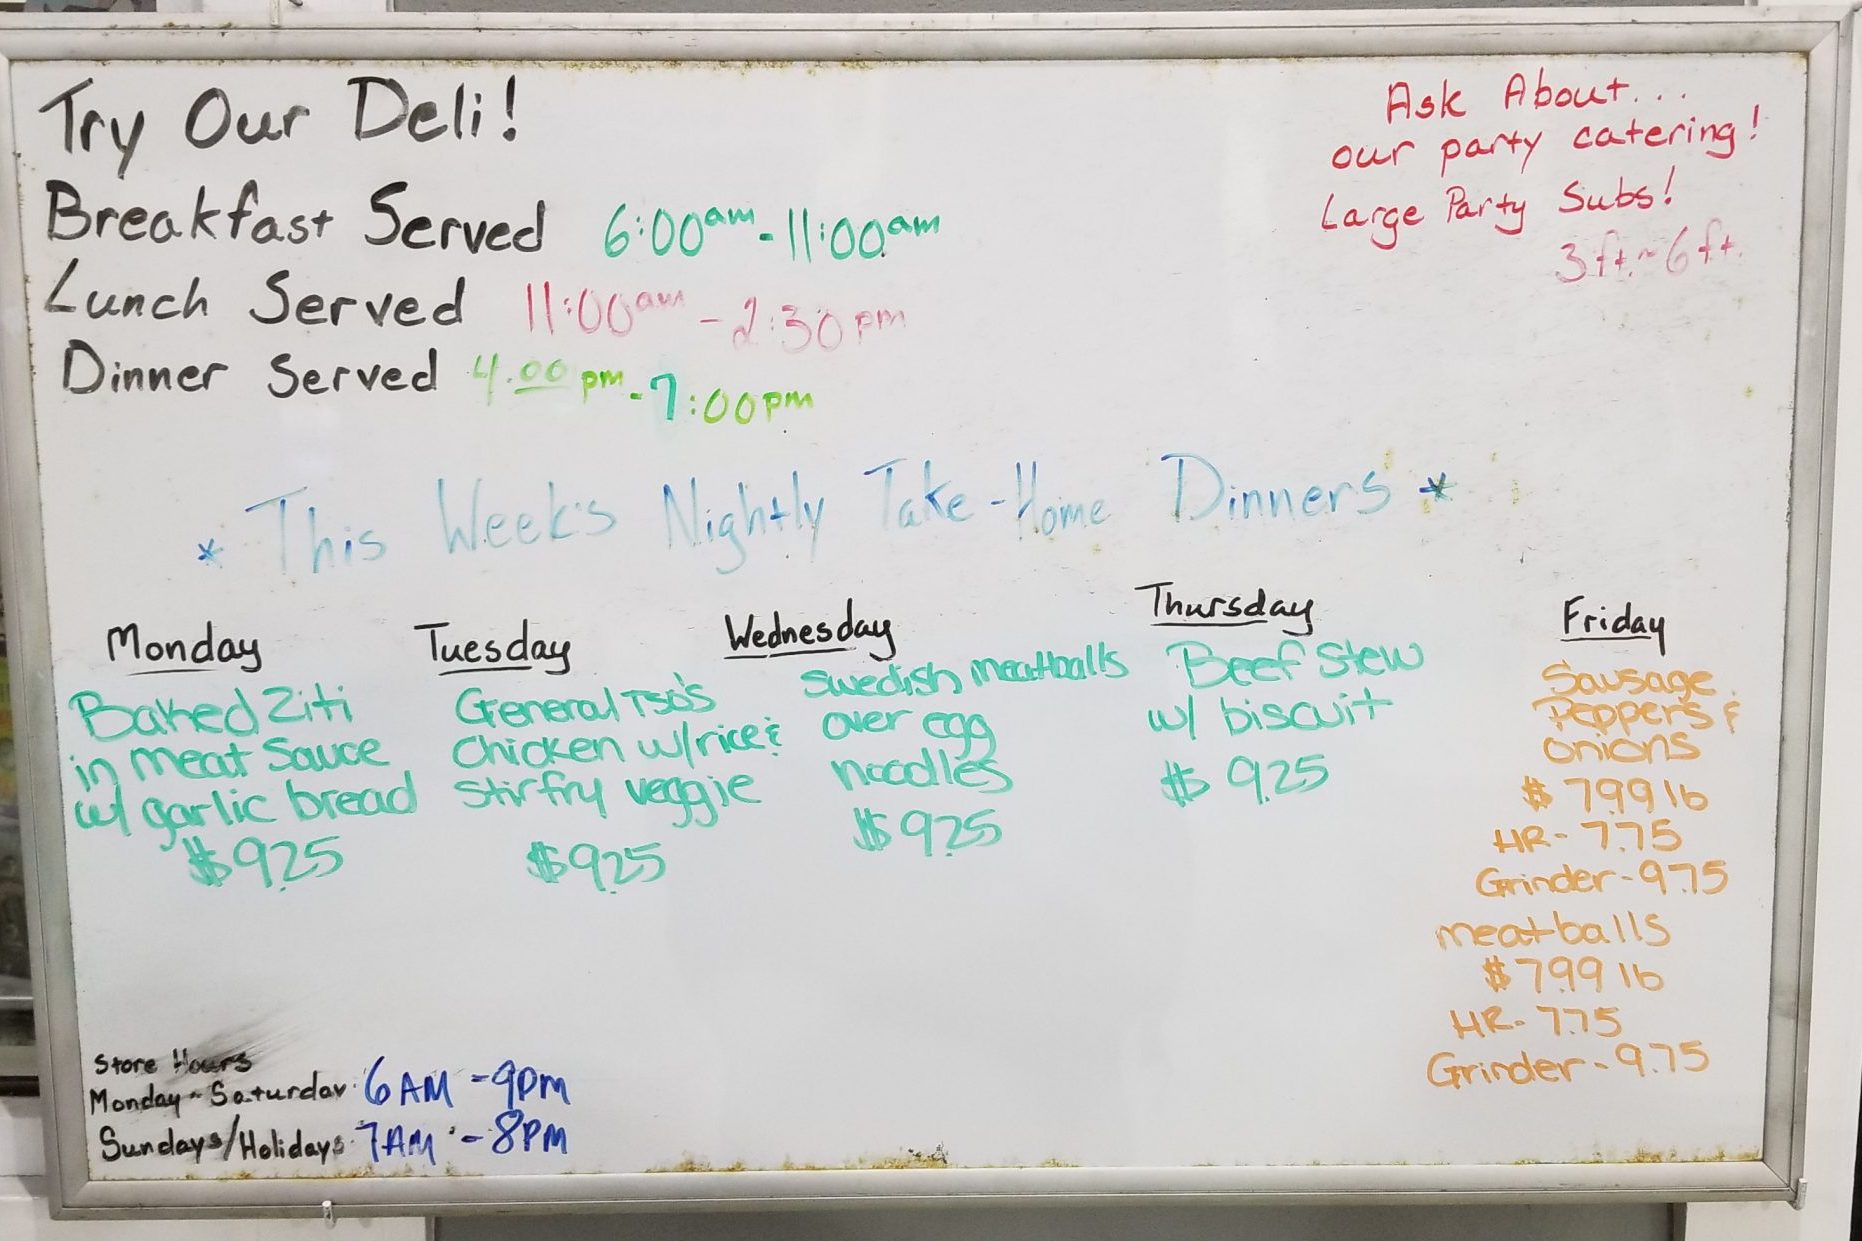 Try Our Deli!
Breakfast Served 6:00am - 11:00am
Lunch Served 11:00am - 2:30pm
Dinner Served 4:00pm - 7:00pm
Ask About...
our party catering!
Large Party Subs!
3ft.~6ft.
* This Week's Nightly Take-Home Dinners *
Monday
Baked Ziti
in meat Sauce
w/ garlic bread
$9.25
Tuesday
General Tso's
Chicken w/rice &
stirfry veggie
$9.25
Wednesday
Swedish meatballs
over egg
noodles
$9.25
Thursday
Beef Stew
w/ biscuit
$9.25
Friday
Sausage
Peppers &
onions
$7.99 lb
HR- 7.75
Grinder- 9.75
meatballs
$7.99 lb
HR- 7.75
Grinder- 9.75
Store Hours
Monday-Saturday 6AM - 9pm
Sundays/Holidays 7AM - 8PM